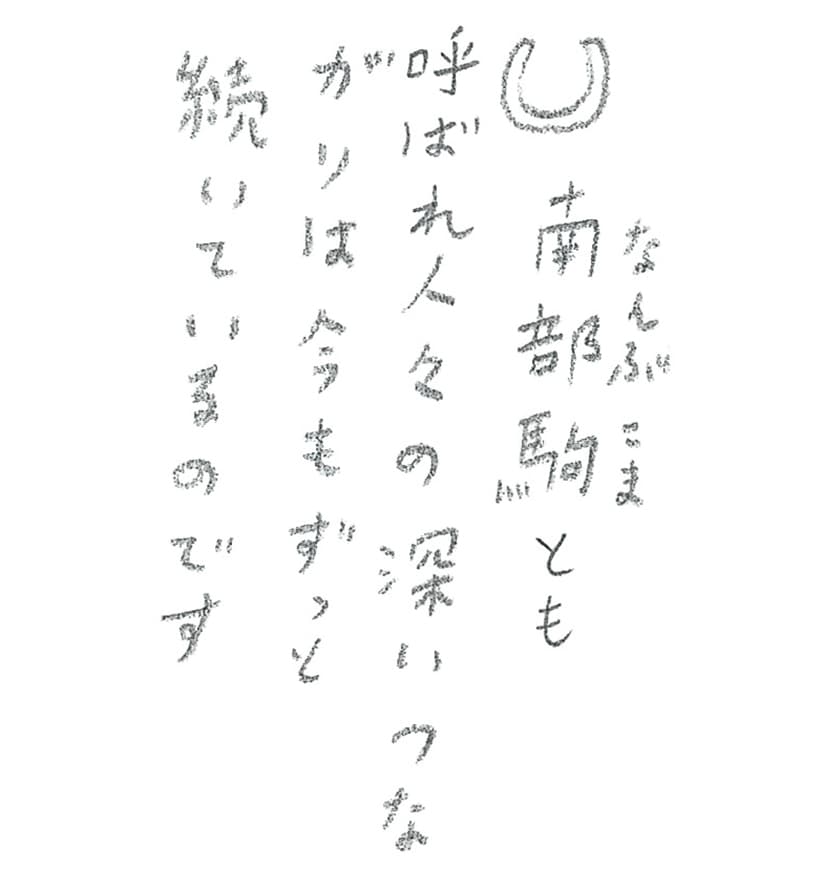 南部駒とも
なんぶこま
呼ばれ人々の深いつな
がりは今もずっと
続いているのです